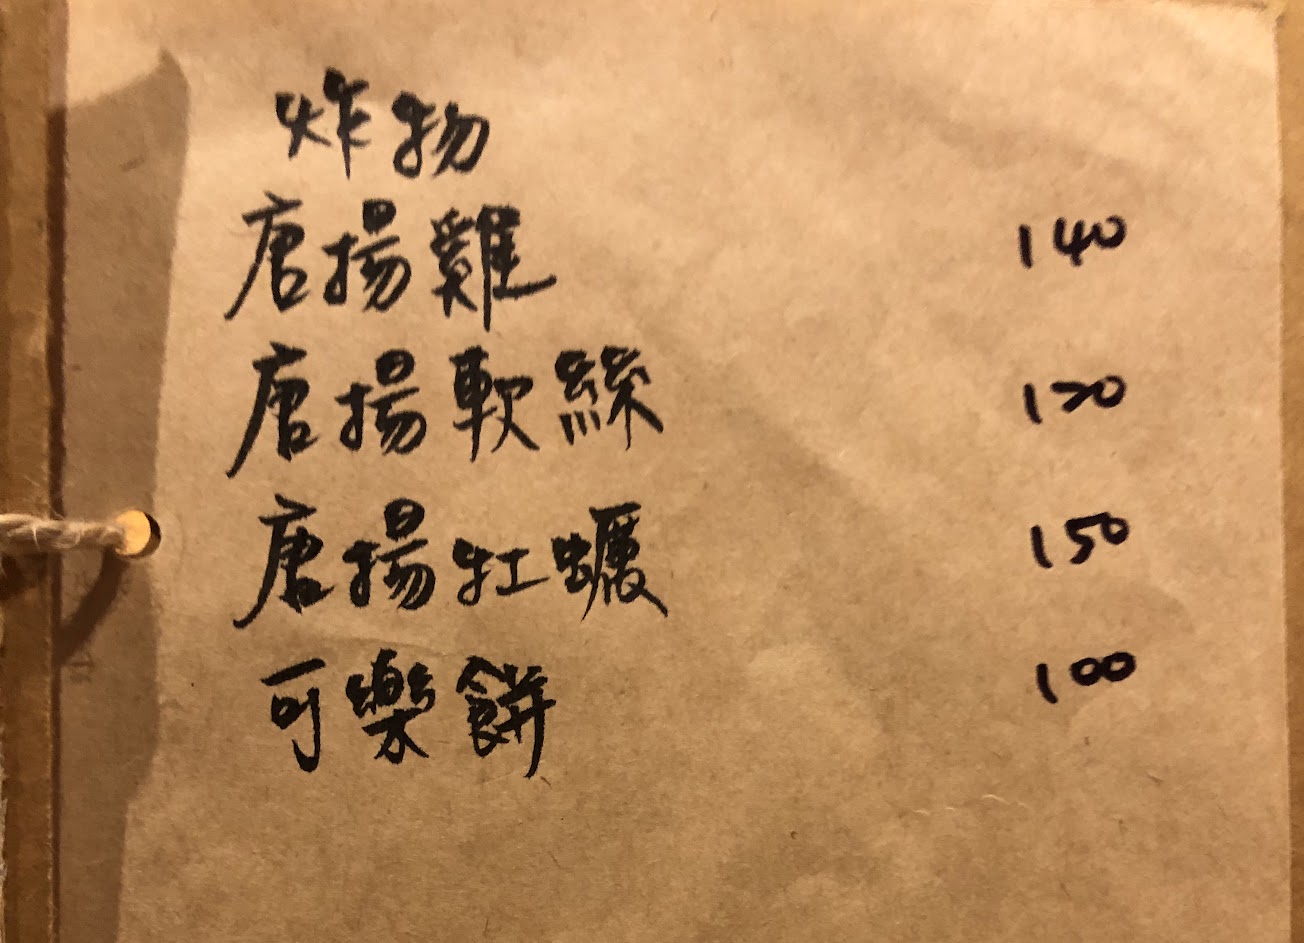 炸物
唐揚雞 140
唐揚軟絲 120
唐揚牡蠣 150
可樂餅 100